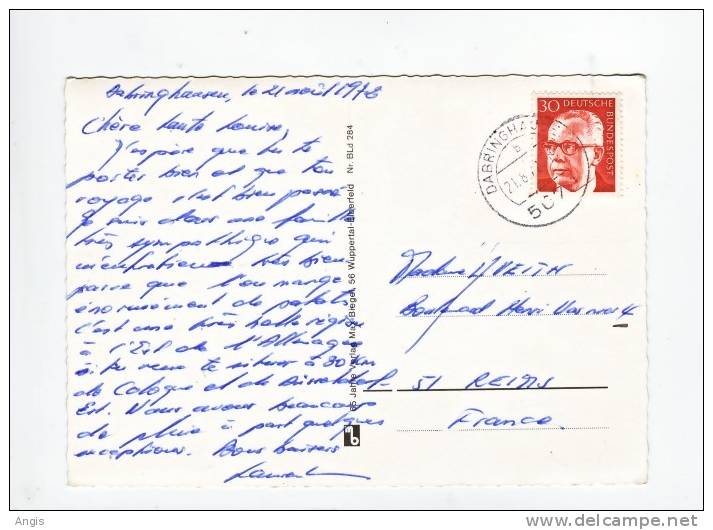 Dabringhausen, le 21 août 197
Chère tante Louise,
J'espère que tu te
portes bien et que ton
voyage s'est bien passé
Je suis dans une famille
très sympathique qui
très bien
parce que l'on mange
énormément de
c'est une très belle région
à l'Est de l'Allemagne
si tu veux te situer à 30 Km
de Cologne et de Düsseldorf
Est. Nous avons beaucoup
de pluie à part quelques
exceptions. Bons baisers
Laurent
65 Jahre Verlag Max Biegel, 56 Wuppertal-Elberfeld Nr. BLd 284
30 DEUTSCHE BUNDESPOST
DABRINGHAUSEN
21.8.7
507
Madame
Boulevard Henri Vasnier
51 REIMS
France.
Angis
www.delcampe.net